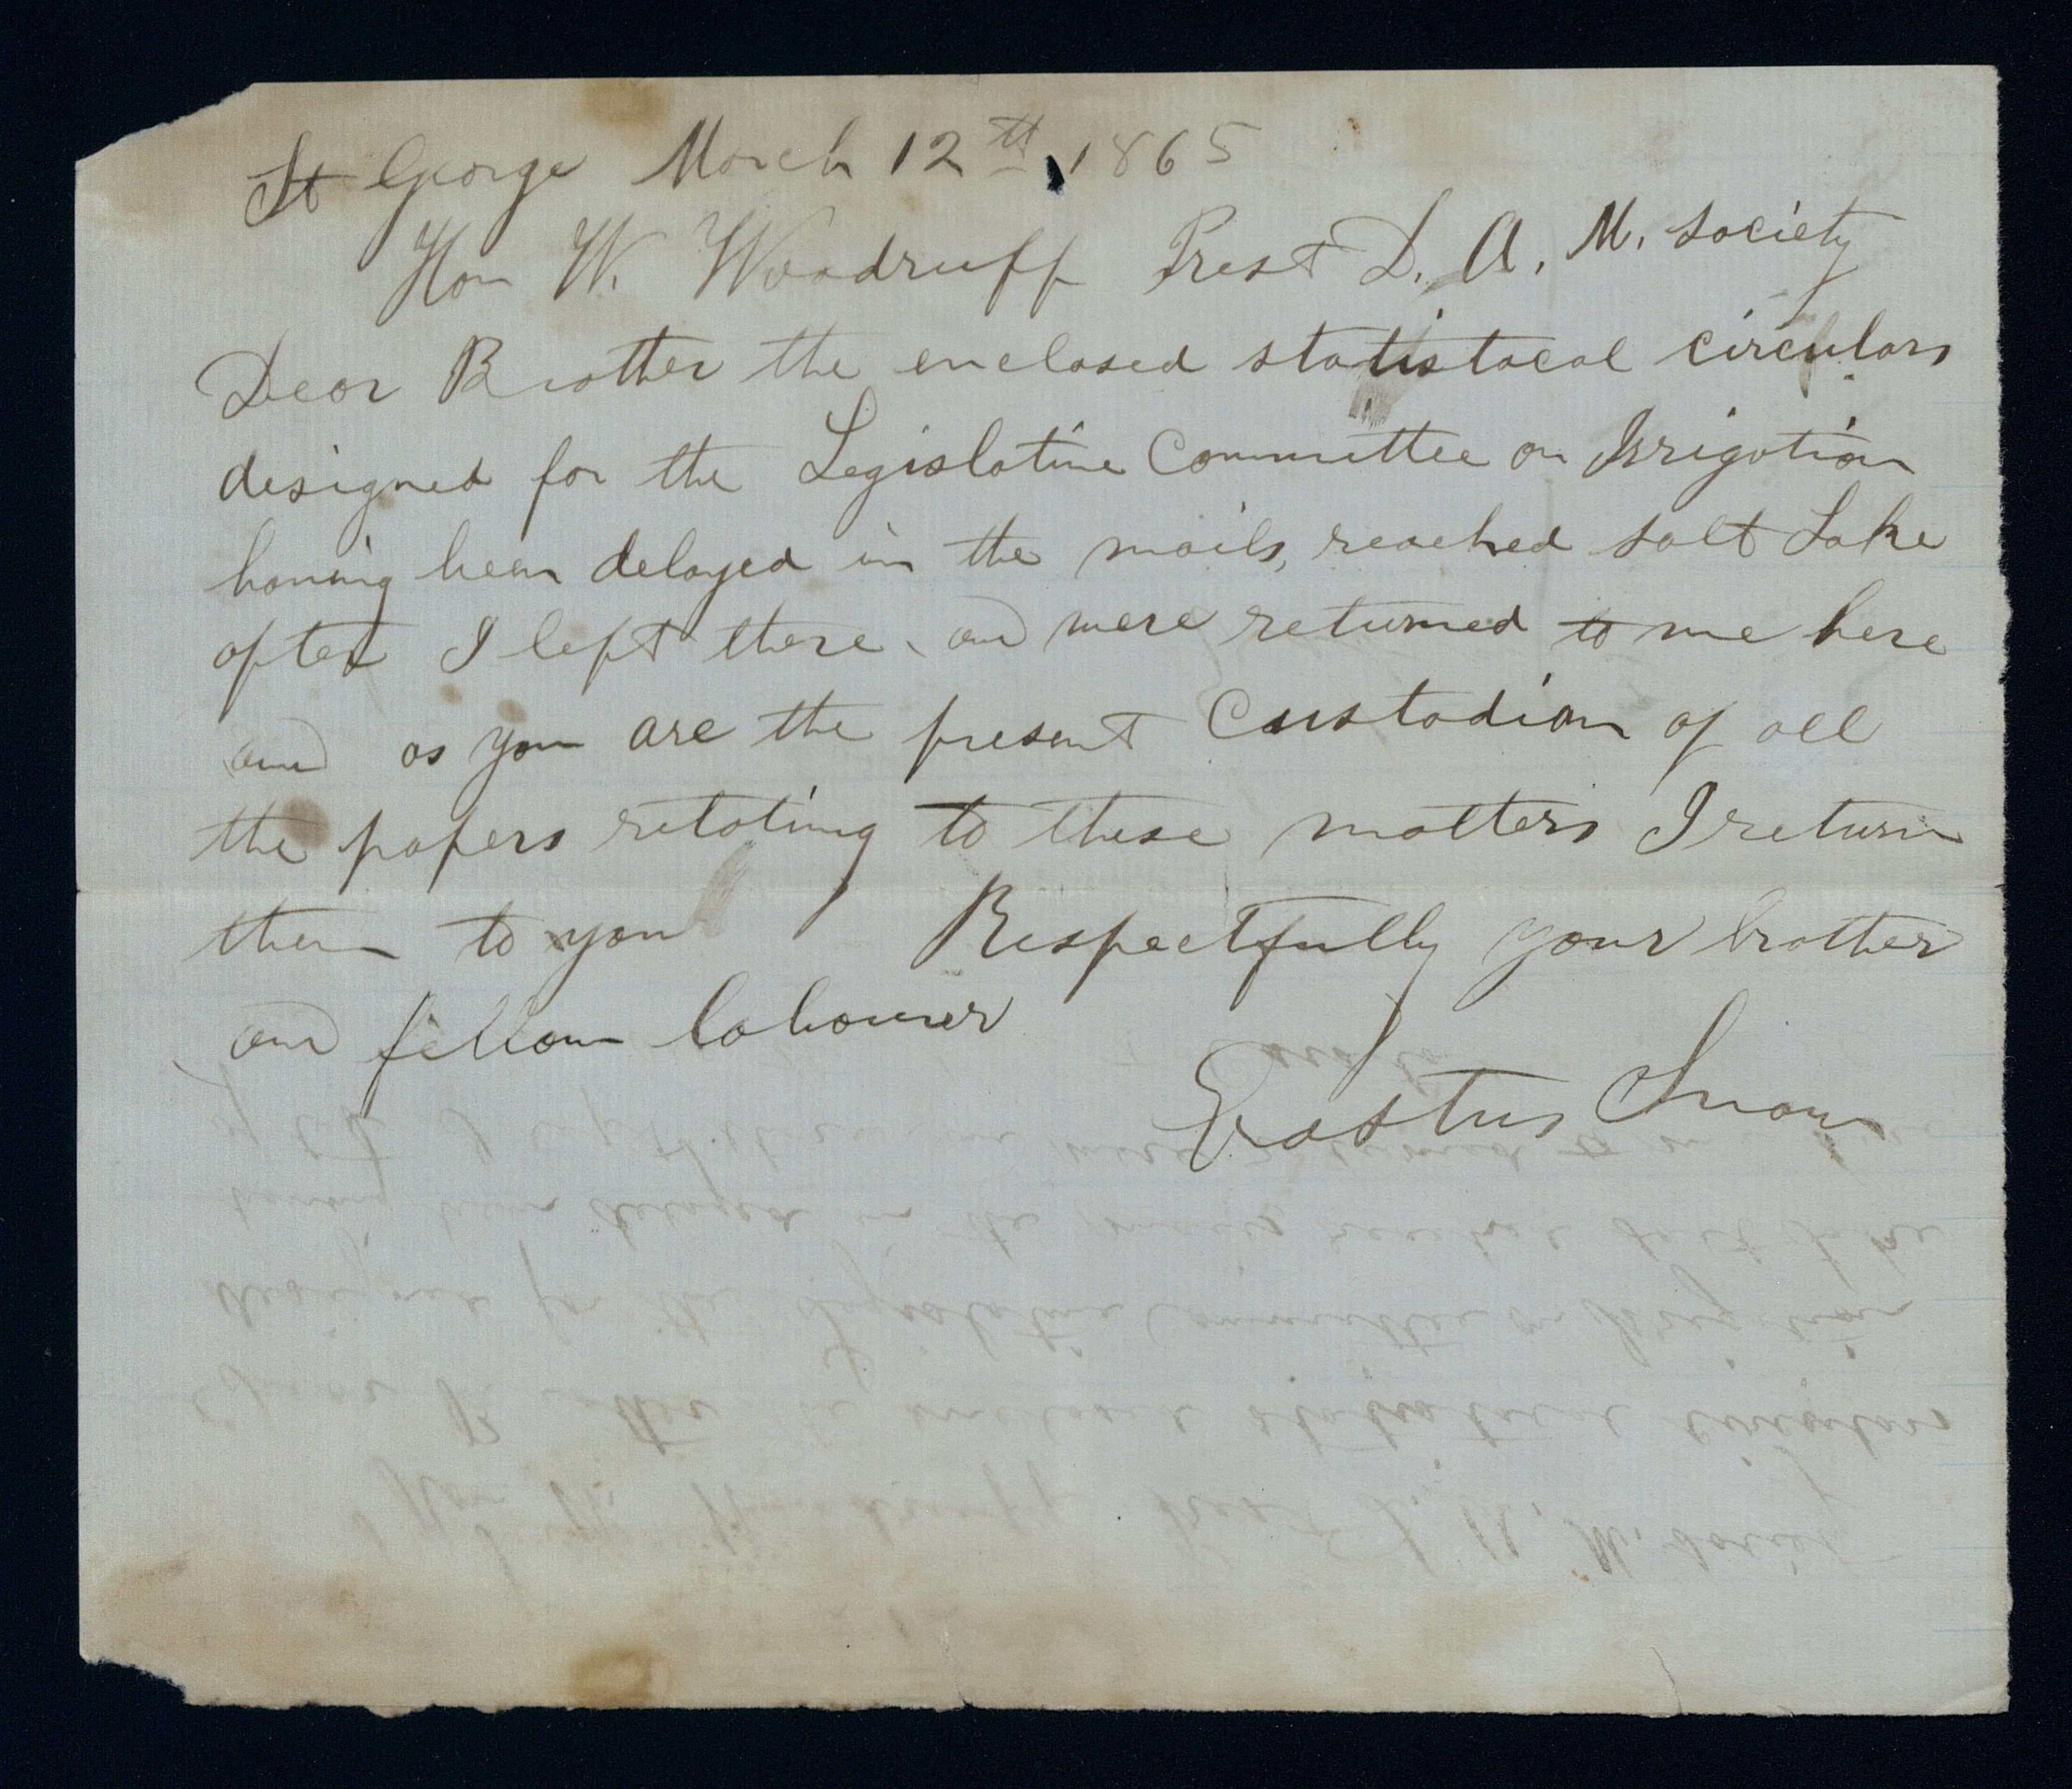 St George March 12th 1865
Hon W. Woodruff Prest D. A. M. Society
Dear Brother the enclosed statistacal circulars
designed for the Legislative Committee on Irrigation
having been delayed in the mails, reached Salt Lake
after I left there, and were returned to me here
and as you are the present Custodian of all
the papers retating to these matters I return
them to you Respectfully your brother
and fellow labourer
Erastus Snow